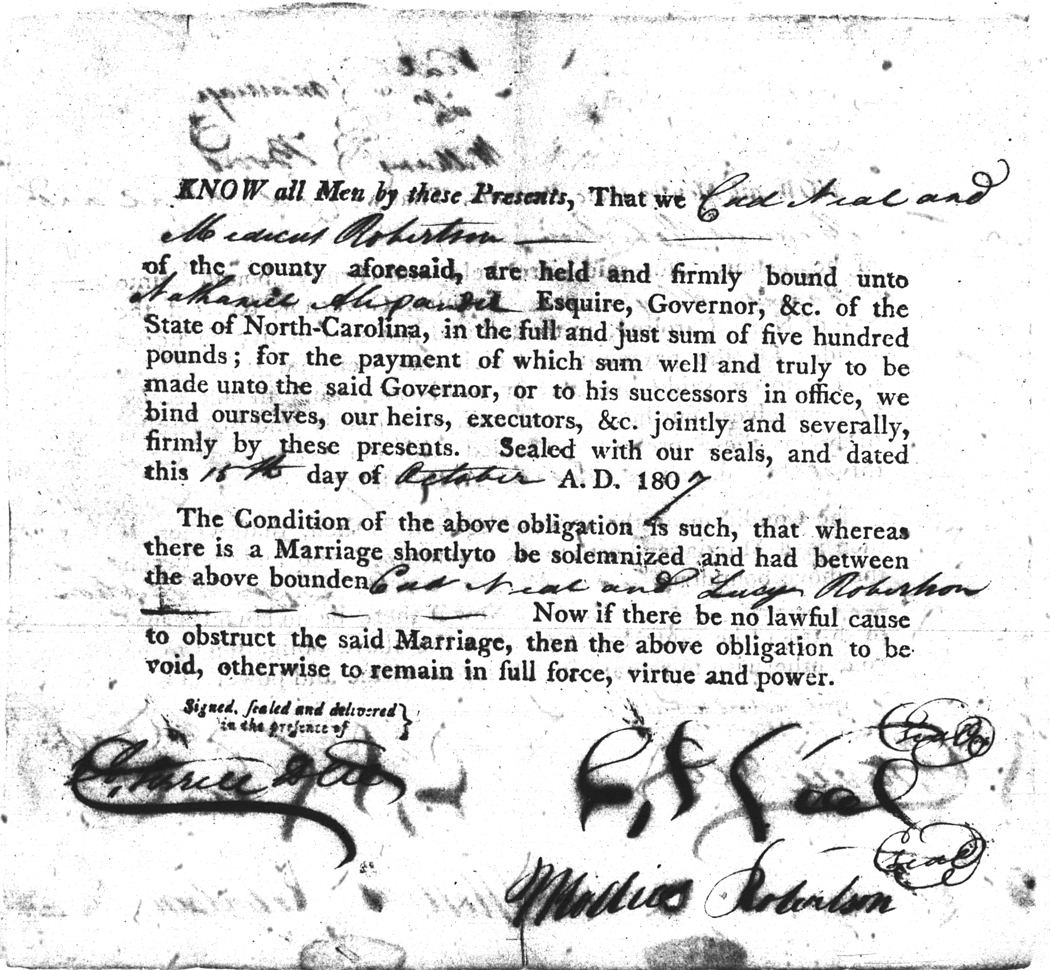 KNOW all Men by these Presents, That we Cad Neal and
Medicus Robertson
of the county aforesaid, are held and firmly bound unto
Nathaniel Esquire, Governor, &c. of the
State of North-Carolina, in the full and just sum of five hundred
pounds; for the payment of which sum well and truly to be
made unto the said Governor, or to his successors in office, we
bind ourselves, our heirs, executors, &c. jointly and severally,
firmly by these presents. Sealed with our seals, and dated
this 15th day of October A. D. 1807
The Condition of the above obligation is such, that whereas
there is a Marriage shortlyto be solemnized and had between
the above bounden Cad Neal and Lucy Robertson
Now if there be no lawful cause
to obstruct the said Marriage, then the above obligation to be
void, otherwise to remain in full force, virtue and power.
Signed, sealed and delivered
in the presence of
Seal
Neal
Seal
Robertson